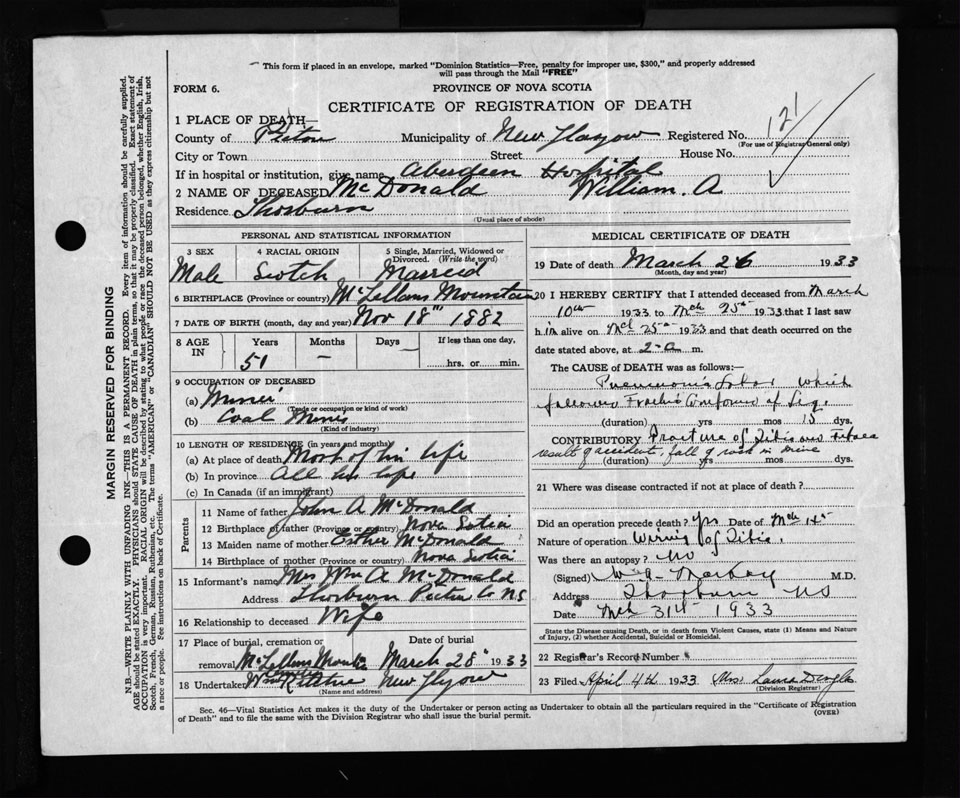 This form if placed in an envelope, marked "Dominion Statistics—Free, penalty for improper use, $300," and properly addressed
will pass through the Mail "FREE"
FORM 6.
PROVINCE OF NOVA SCOTIA
CERTIFICATE OF REGISTRATION OF DEATH
121
1 PLACE OF DEATH—
County of Pictou Municipality of New Glasgow Registered No.
(For use of Registrar General only)
City or Town Street House No.
If in hospital or institution, give name Aberdeen Hospital
2 NAME OF DECEASED McDonald William. A
Residence Thorburn
(Usual place of abode)
PERSONAL AND STATISTICAL INFORMATION
3 SEX 4 RACIAL ORIGIN 5 Single, Married, Widowed or Divorced. (Write the word)
Male Scotch Marreid
6 BIRTHPLACE (Province or country) McLellans Mountain
7 DATE OF BIRTH (month, day and year) Nov 18th 1882
8 AGE IN Years Months Days If less than one day,
51 — — hrs. or min.
9 OCCUPATION OF DECEASED
(a) Miner
(Trade or occupation or kind of work)
(b) Coal Mines
(Kind of industry)
10 LENGTH OF RESIDENCE (in years and months)
(a) At place of death Most of his life
(b) In province All his life
(c) In Canada (if an immigrant)
Parents
11 Name of father John A McDonald
12 Birthplace of father (Province or country) Nova Sotia
13 Maiden name of mother Esther McDonald
14 Birthplace of mother (Province or country) Nova Sotia
15 Informant's name Mrs Wm A McDonald
Address Thorburn Pictou Co NS
16 Relationship to deceased Wife
17 Place of burial, cremation or removal McLellans Date of burial March 28" 1933
18 Undertaker New Glasgow
(Name and address)
MEDICAL CERTIFICATE OF DEATH
19 Date of death March 26 1933
(Month, day and year)
20 I HEREBY CERTIFY that I attended deceased from March
10th 1933 to Mch 25th 1933 that I last saw
him alive on Mch 25th 1933 and that death occurred on
the date stated above, at 2 a m.
The CAUSE OF DEATH was as follows:—
Pneumonia Lobar which
followed of leg.
(duration) yrs mos 13 dys.
CONTRIBUTORY Fracture of Tibia and
result of accident, fall of rock in mine
(duration) yrs mos dys.
21 Where was disease contracted if not at place of death?
Did an operation precede death? yes Date of Mch 14th
Nature of operation Wiring of Tibia.
Was there an autopsy? no
(Signed) M.D.
Address Thorburn NS
Date Mch 31st 1933
State the Disease causing Death, or in death from Violent Causes, state (1) Means and
Nature of Injury, (2) whether Accidental, Suicidal or Homicidal.
22 Registrar's Record Number
23 Filed April 4th 1933 Mrs Laura
(Division Registrar)
Sec. 46—Vital Statistics Act makes it the duty of the Undertaker or person acting as Undertaker to obtain all the particulars required in the "Certificate of Registration
of Death" and to file the same with the Division Registrar who shall issue the burial permit.
(OVER)
MARGIN RESERVED FOR BINDING
N.B.—WRITE PLAINLY WITH UNFADING INK—THIS IS A PERMANENT RECORD. Every item of information should be carefully supplied.
AGE should be stated EXACTLY. PHYSICIANS should state CAUSE OF DEATH in plain terms, so that it may be properly classified. Exact statement of
OCCUPATION is very important. RACIAL ORIGIN will be described by stating to what people or race the deceased person belonged, whether English, Irish,
Scotch, French, German, Russian, Ruthenian, etc. The terms "AMERICAN" or "CANADIAN" SHOULD NOT BE USED as they express citizenship but not
a race or people. See instructions on back of Certificate.